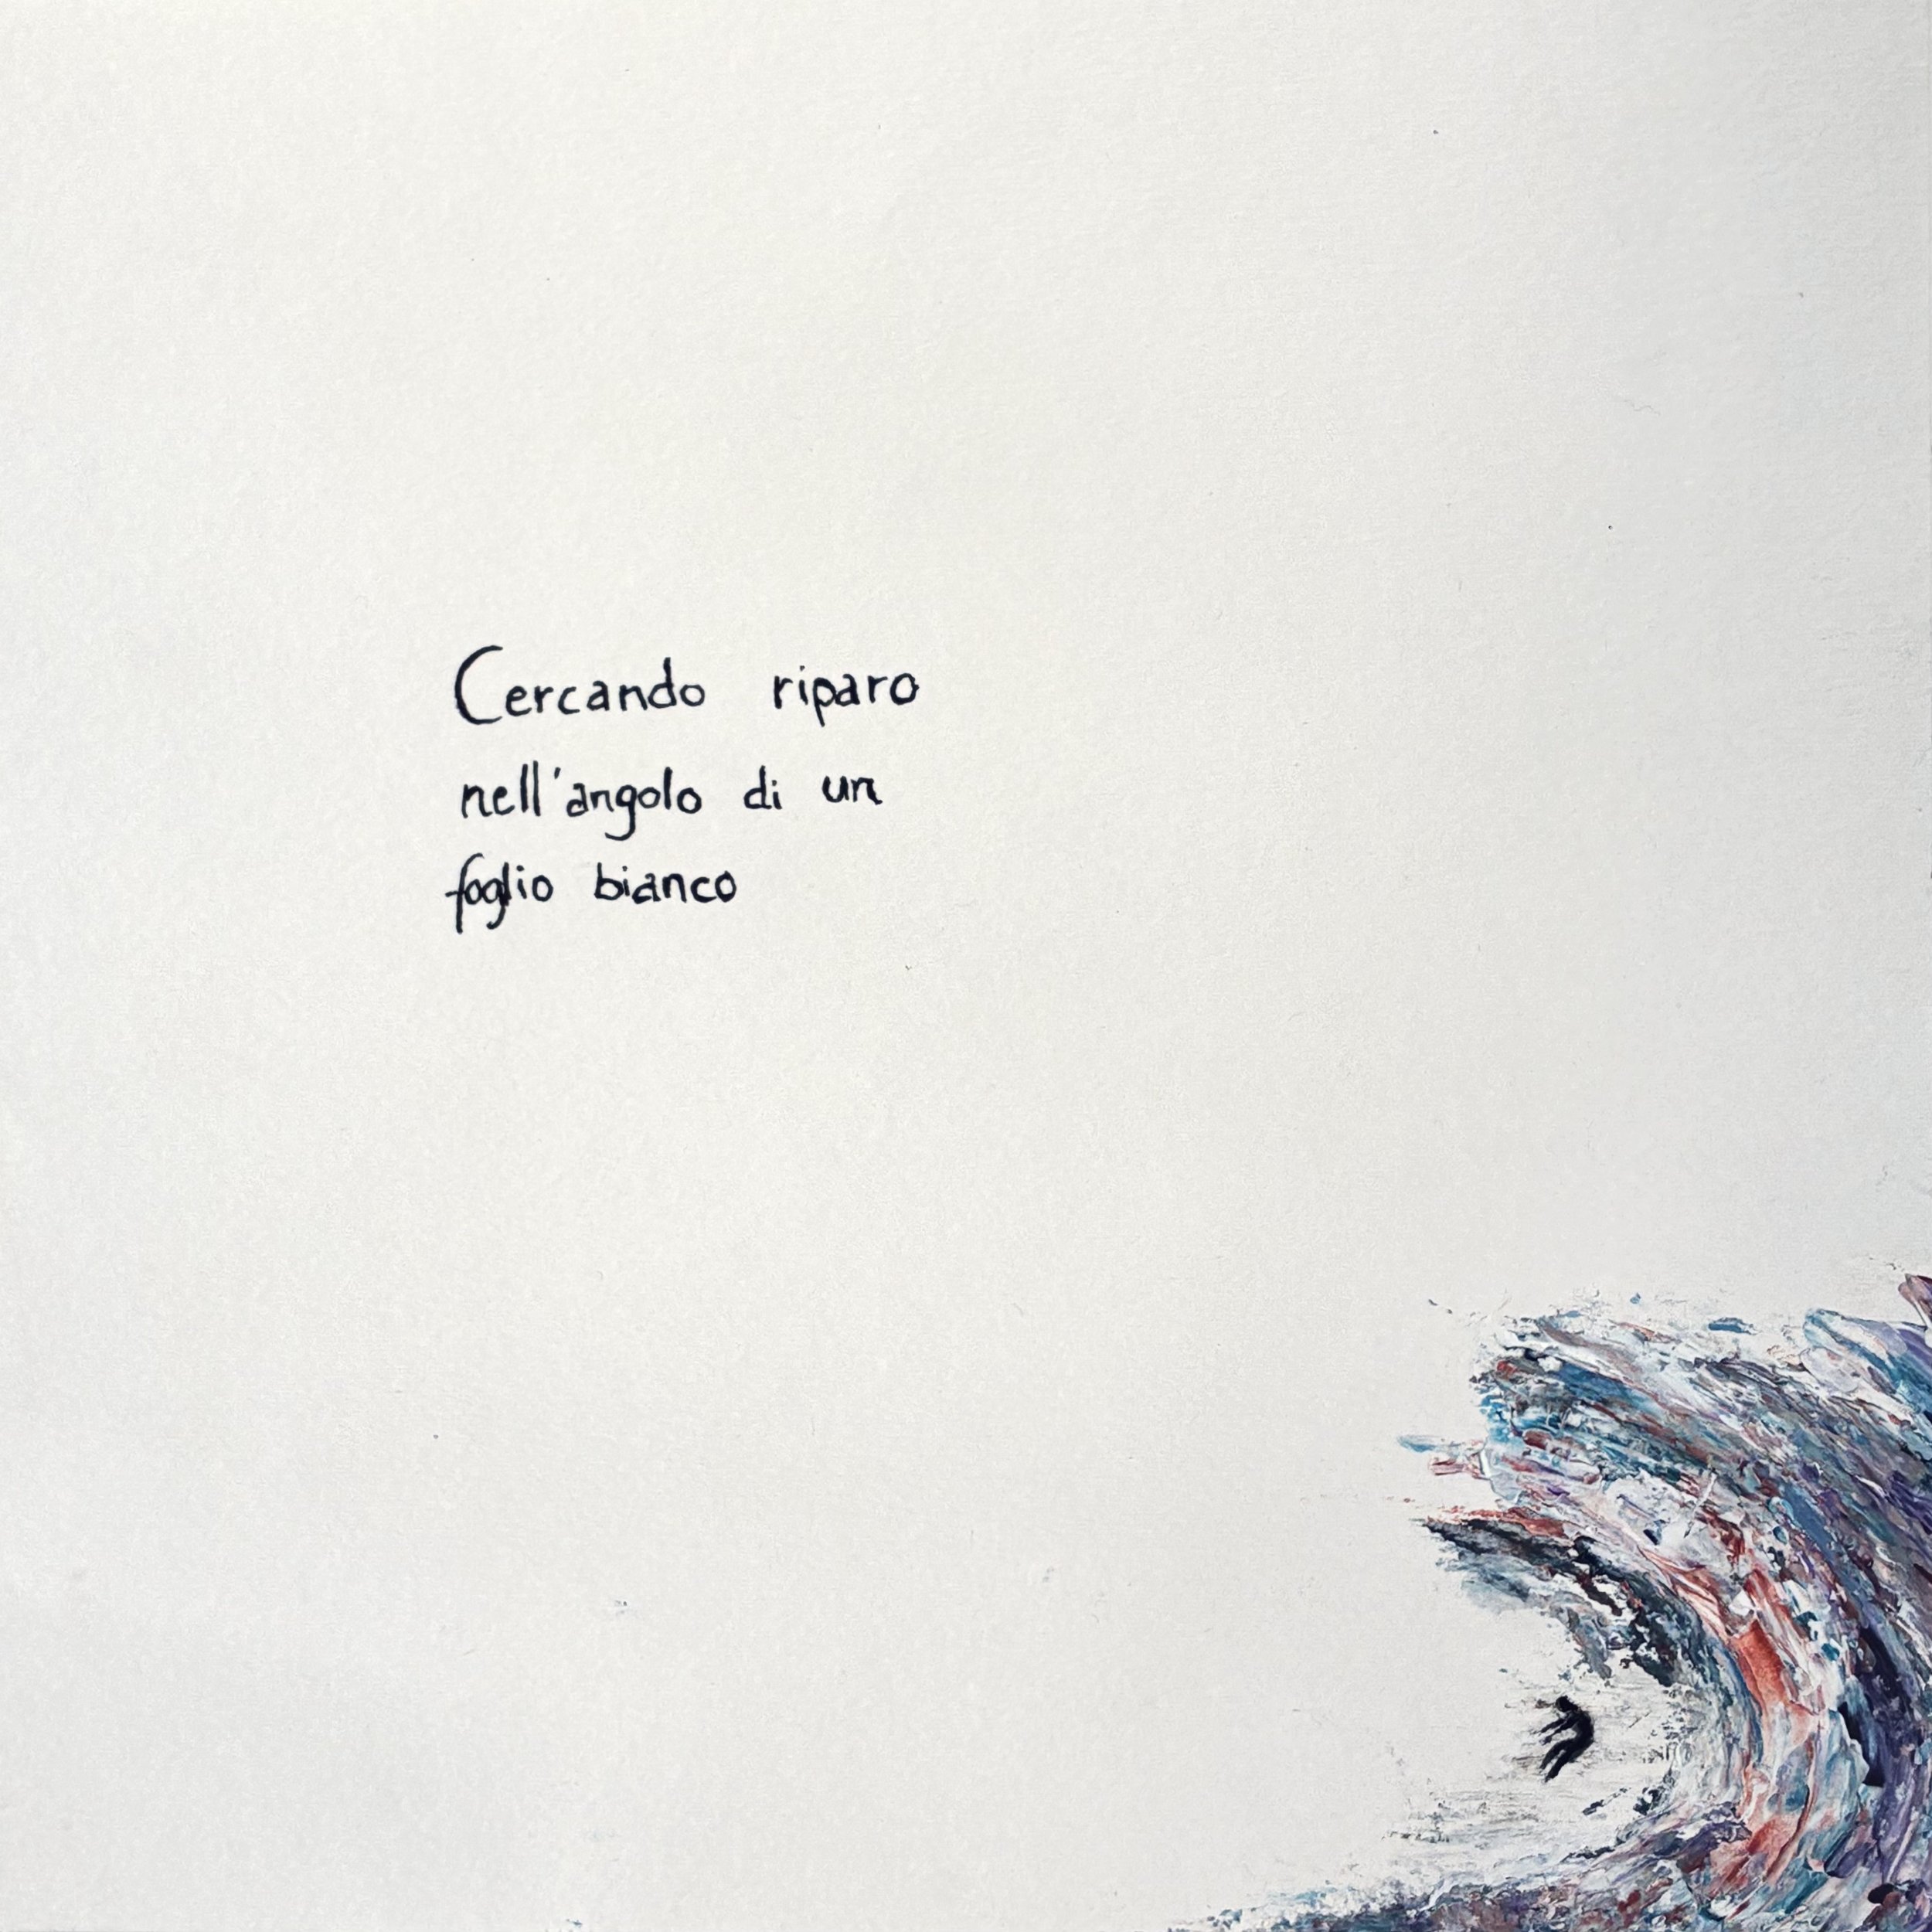 Cercando riparo
nell'angolo di un
foglio bianco